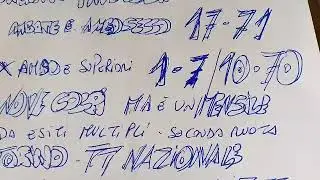 AMBATE E AMBO SECCO 17-71
X AMBO E SUPERIORI 1-7/10-70
MA È UN MENSILE
DA ESITI MULTIPLI - SECONDA RUOTA
TORINO - TT NAZIONALE